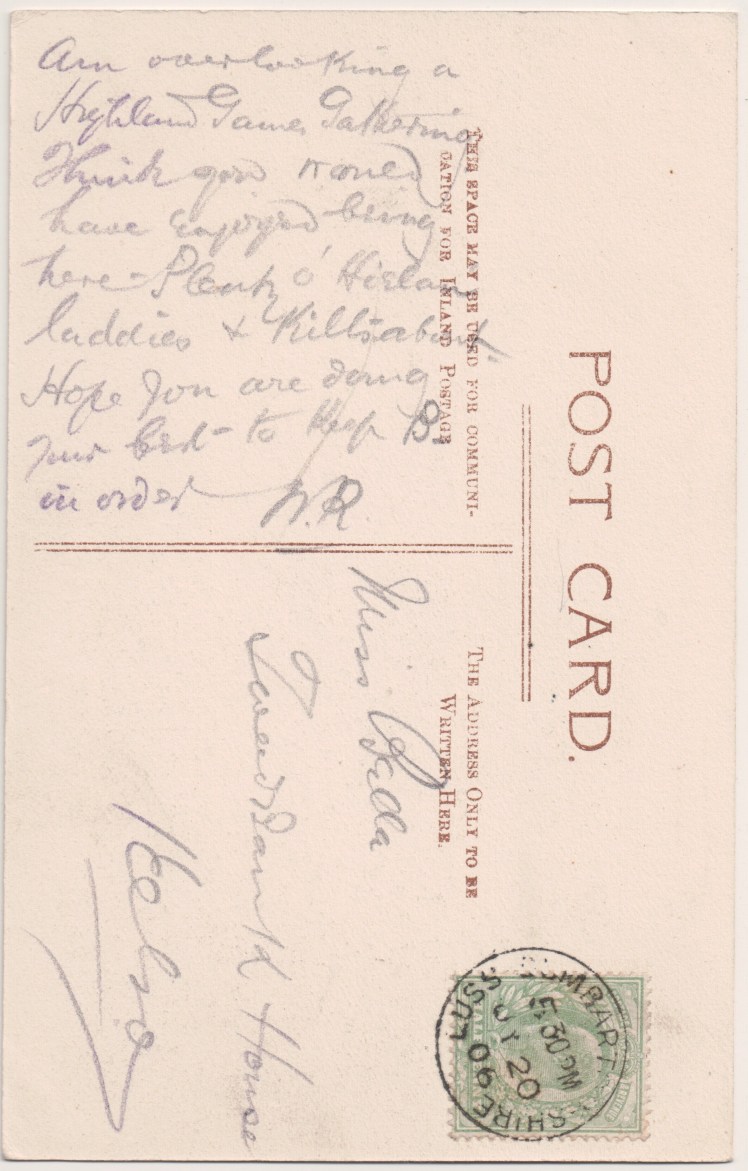 Am overlooking a
Highland Games Gathering
Think you would
have enjoyed being
here - Plenty o' Hielan
laddies & Kilts about.
Hope you are doing
your best to keep B.
in order W.R.
POST CARD.
THIS SPACE MAY BE USED FOR COMMUNI-
CATION FOR INLAND POSTAGE
THE ADDRESS ONLY TO BE
WRITTEN HERE.
Miss
Tweedbank House
Kelso
LUSS DUMBARTONSHIRE
5.30PM
JY 20
06